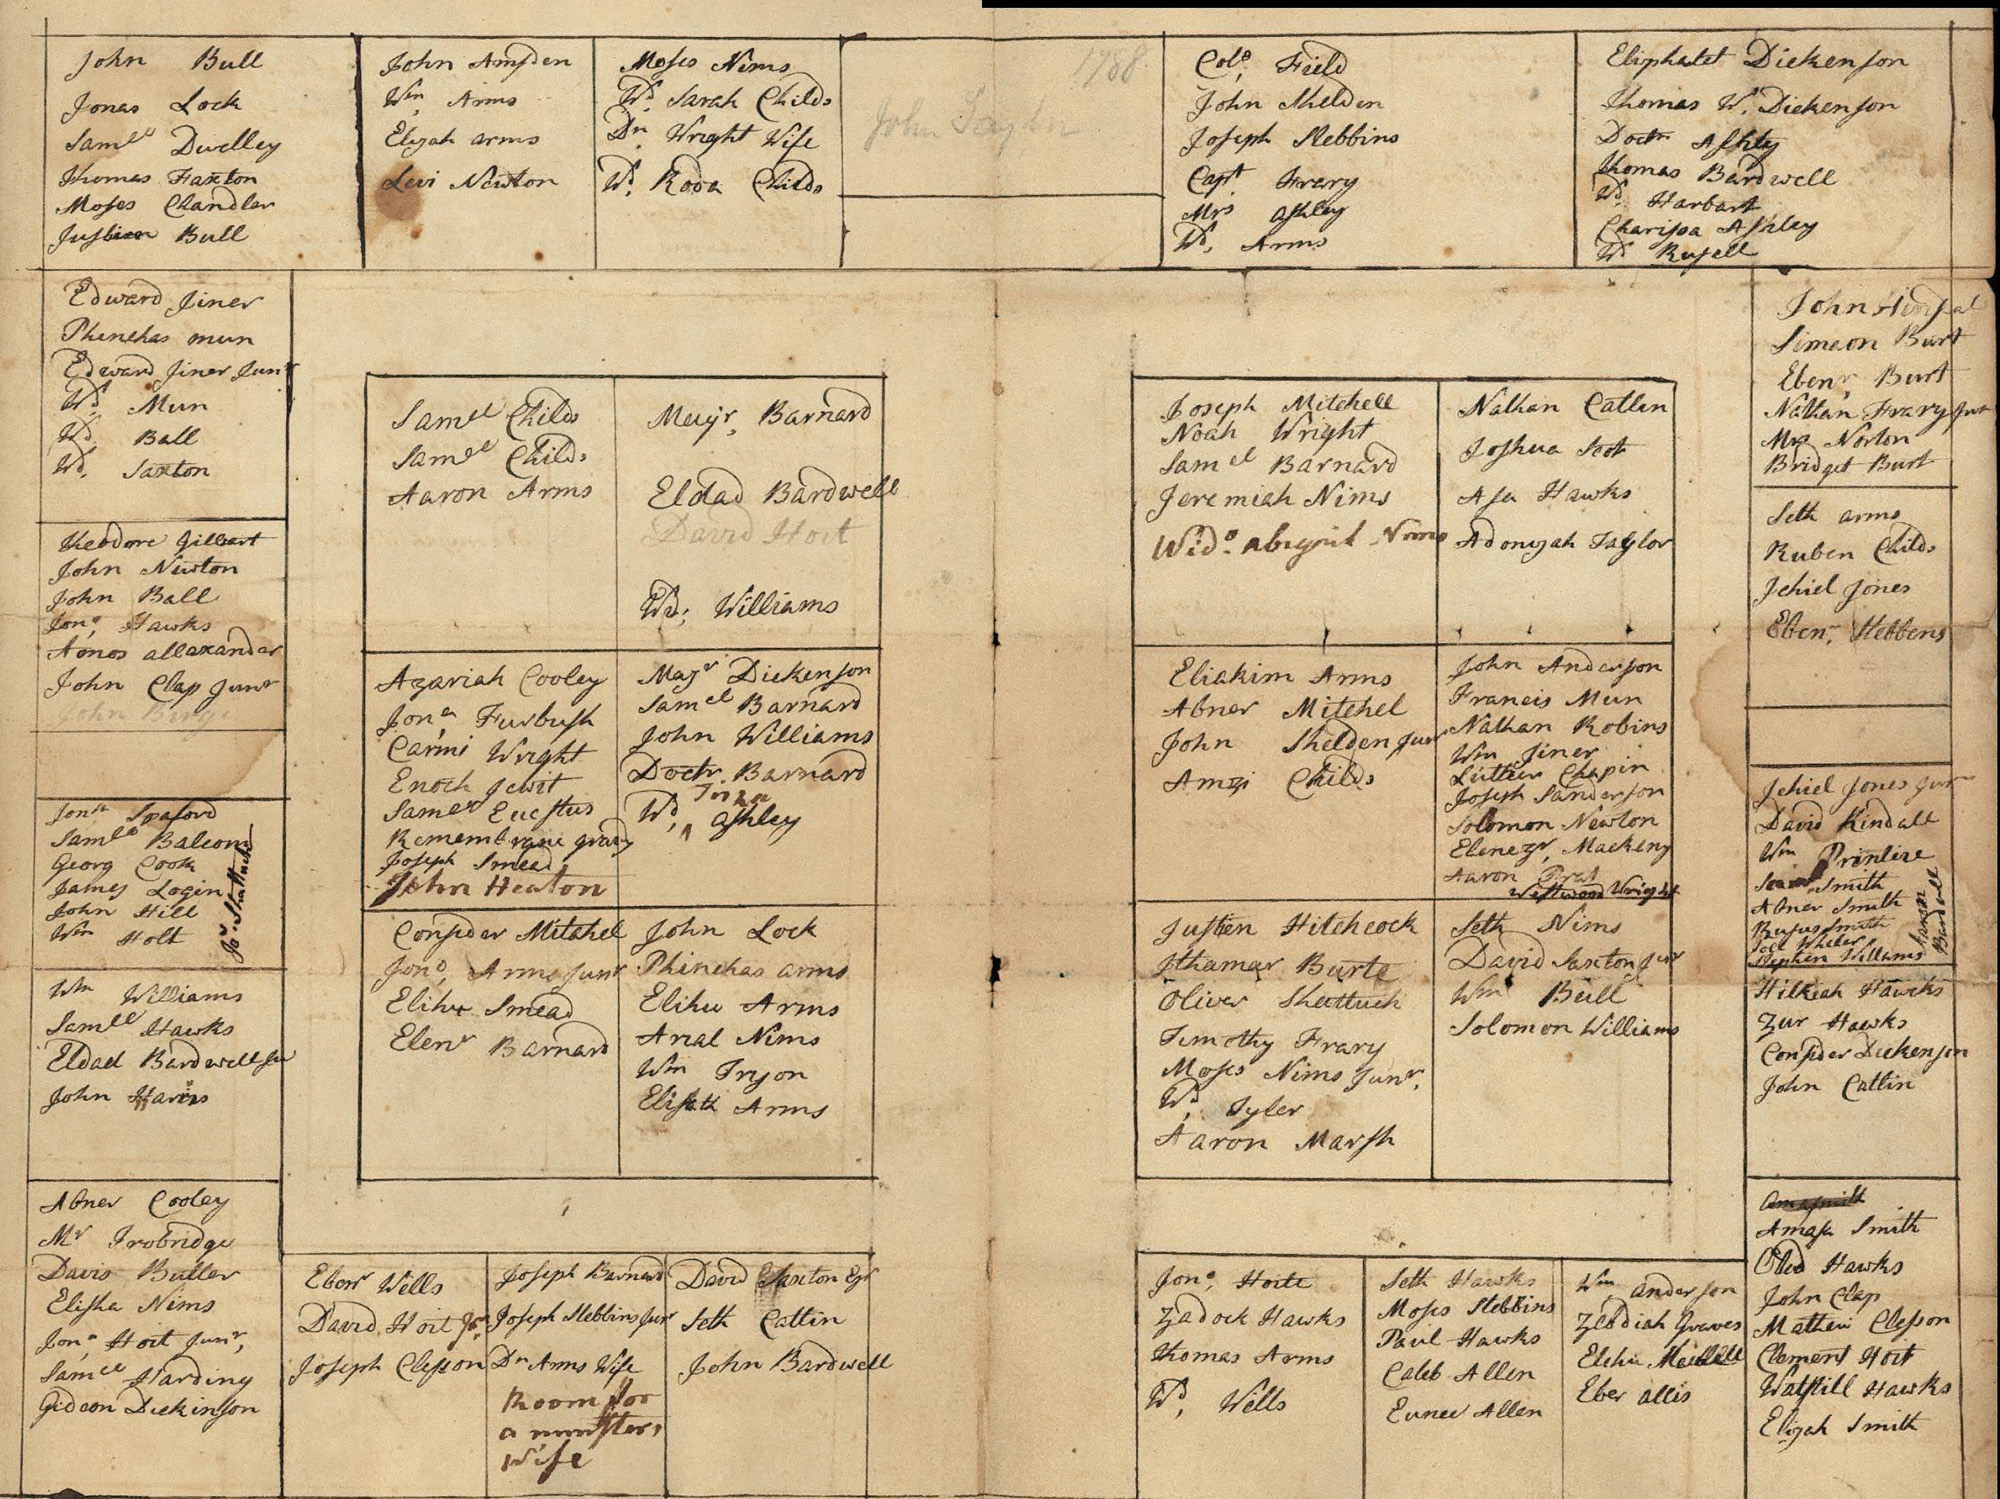 John Bull
Jonas Lock
Sam^ll Dwelley
Thomas Faxton
Moses Chandler
Justien Bull
John Amsden
W^m Arms
Elijah arms
Levi Newton
Moses Nims
W^d. Sarah Childs
Dn. Wright Wife
W^d. Rода Childs
1788
John Taylor
Col^o. Field
John Shelden
Joseph Stebbins
Cap^t. Frary
Mrs Ashley
W^d. Arms
Eliphalet Dickenson
Thomas W. Dickenson
Doctr Ashley
Thomas Bardwell
W^d. Harbart
Charissa Ashley
W^d Rusell
Edward Jiner
Phinehas mun
Edward Jiner Jun^r
W^d. Mun
W^d. Ball
W^d. Saxton
Theodore Gilbart
John Newton
John Ball
Jon^a. Hawks
Amos allaxandar
John Clap Jun^r
John
Jon^n Spaford
Sam^ll Balcom
Georg Cook
James Login
John Hill
W^m Holt
Jo^s. Shattuck
W^m Williams
Sam^ll Hawks
Eldad Bardwell Ju
John Haris
Abner Cooley
M^r Trobridge
Davis Butler
Elisha Nims
Jon^a. Hoit Jun^r,
Sam^ll Harding
Gideon Dickinson
Sam^ll Childs
Sam^ll Childs
Aaron Arms
Majr. Barnard
Eldad Bardwell
David Hoit
Wd. Williams
Azariah Cooley
Jon^a Furbush
Carmi Wright
Enoch Jewit
Sam^ll Eustus
Joseph Smead
John Heaton
Maj^r Dickenson
Sam^ll Barnard
John Williams
Doctr. Barnard
W^d. ^ Ashley
Consider Mitchel
Jon^a. Arms Jun^r
Elihu Smead
Eben^r Barnard
John Lock
Phinehas arms
Elihu Arms
Arial Nims
W^m Tryon
Eliseth Arms
Joseph Mitchell
Noah Wright
Sam^el Barnard
Jeremiah Nims
Wid^o. abigail Nims
Nathan Catlin
Joshua Scot
Asa Hawks
Adonijah Taylor
Eliakim Arms
Abner Mitchel
John Shelden Jun^r
Amzi Childs
John Anderson
Francis Mun
Nathan Robins
W^m Jiner
Luther Chapin
Joseph Sanderson
Solomon Newton
Ebenezr, Mackeny
Aaron Prat
Westwood Wright
Justien Hitchcock
Ithamar Burte
Oliver Shattuck
Timothy Frary
Moses Nims Jun^r.
W^d. Tyler
Aaron Marsh
Seth Nims
David Saxton Jun^r
W^m Bull
Solomon Williams
John Hinsdal
Simeon Burt
Eben^r. Burt
Nathan Frary Jun^r
Mrs Norton
Bridget Burt
Seth arms
Ruben Childs
Jehiel Jones
Eben^r. Stebbens
Jehiel Jones Jun^r
David Kindall
W^m Printice
Smith
Abner Smith
Rufus Smith
Joel Wheler
Stephen Williams
Aaron Bardwell
Hilkiah Hawks
Zur Hawks
Consider Dickenson
John Catlin
Amasa Smith
Obed Hawks
John Clap
Mathew Clesson
Clement Hoit
Waistill Hawks
Elijah Smith
Eben^r Wells
David Hoit J^r.
Joseph Clesson
Joseph Barnard
Joseph Stebbins Jun^r
Dn Arms Wife
Room for
a minsters
Wife
David Saxton Esq^r
Seth Catlin
John Bardwell
Jon^a. Hoite
Zadock Hawks
Thomas Arms
W^d. Wells
Seth Hawks
Moses Stebbins
Paul Hawks
Caleb Allen
Eunice Allen
W^m. anderson
Zebdiah Graves
Eber allis